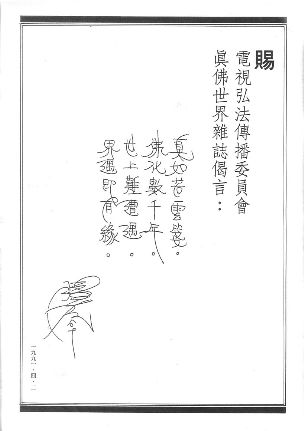 賜
電視弘法傳播委員會
眞佛世界雜誌偈言：
真如雲。
佛化數千年。
世上難遭遇。
界遇即有緣。
一九九一．四．一